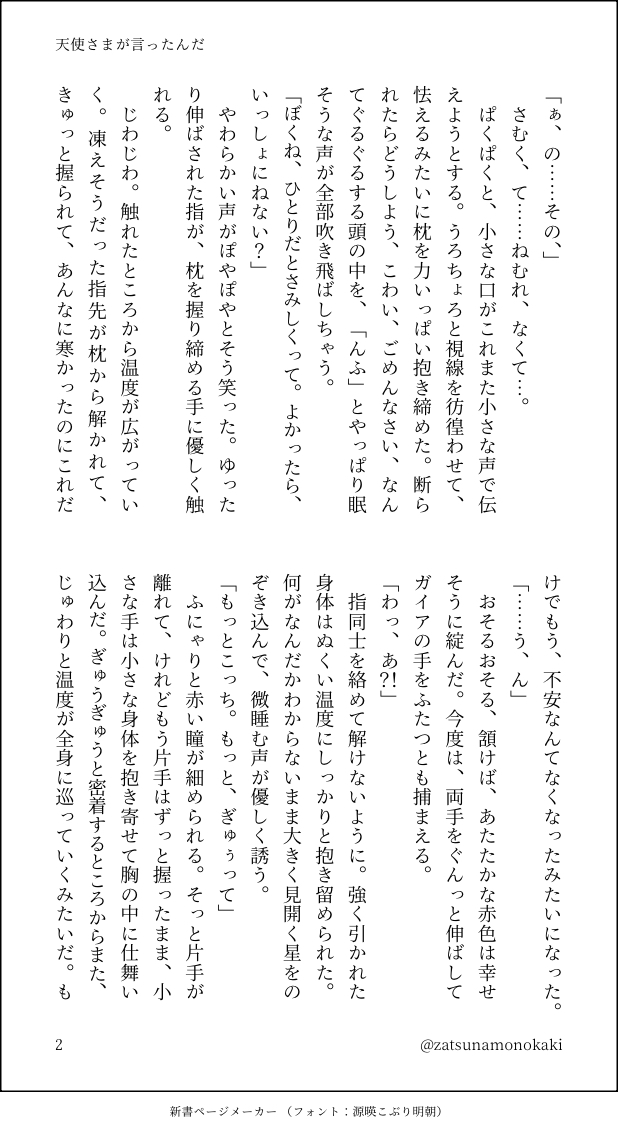 天使さまが言ったんだ
「ぁ、の……その、」
　さむく、て……ねむれ、なくて…。
　ぱくぱくと、小さな口がこれまた小さな声で伝
えようとする。うろちょろと視線を彷徨わせて、
怯えるみたいに枕を力いっぱい抱き締めた。断ら
れたらどうしよう、こわい、ごめんなさい、なん
てぐるぐるする頭の中を、「んふ」とやっぱり眠
そうな声が全部吹き飛ばしちゃう。
「ぼくね、ひとりだとさみしくって。よかったら、
いっしょにねない？」
　やわらかい声がぽやぽやとそう笑った。ゆった
り伸ばされた指が、枕を握り締める手に優しく触
れる。
　じわじわ。触れたところから温度が広がってい
く。凍えそうだった指先が枕から解かれて、
きゅっと握られて、あんなに寒かったのにこれだ
けでもう、不安なんてなくなったみたいになった。
「……う、ん」
　おそるおそる、頷けば、あたたかな赤色は幸せ
そうに綻んだ。今度は、両手をぐんっと伸ばして
ガイアの手をふたつとも捕まえる。
「わっ、あ?!」
　指同士を絡めて解けないように。強く引かれた
身体はぬくい温度にしっかりと抱き留められた。
何がなんだかわからないまま大きく見開く星をの
ぞき込んで、微睡む声が優しく誘う。
「もっとこっち。もっと、ぎゅぅって」
　ふにゃりと赤い瞳が細められる。そっと片手が
離れて、けれどもう片手はずっと握ったまま、小
さな手は小さな身体を抱き寄せて胸の中に仕舞い
込んだ。ぎゅうぎゅうと密着するところからまた、
じゅわりと温度が全身に巡っていくみたいだ。も
2
@zatsunamonokaki
新書ページメーカー（フォント：源暎こぶり明朝）